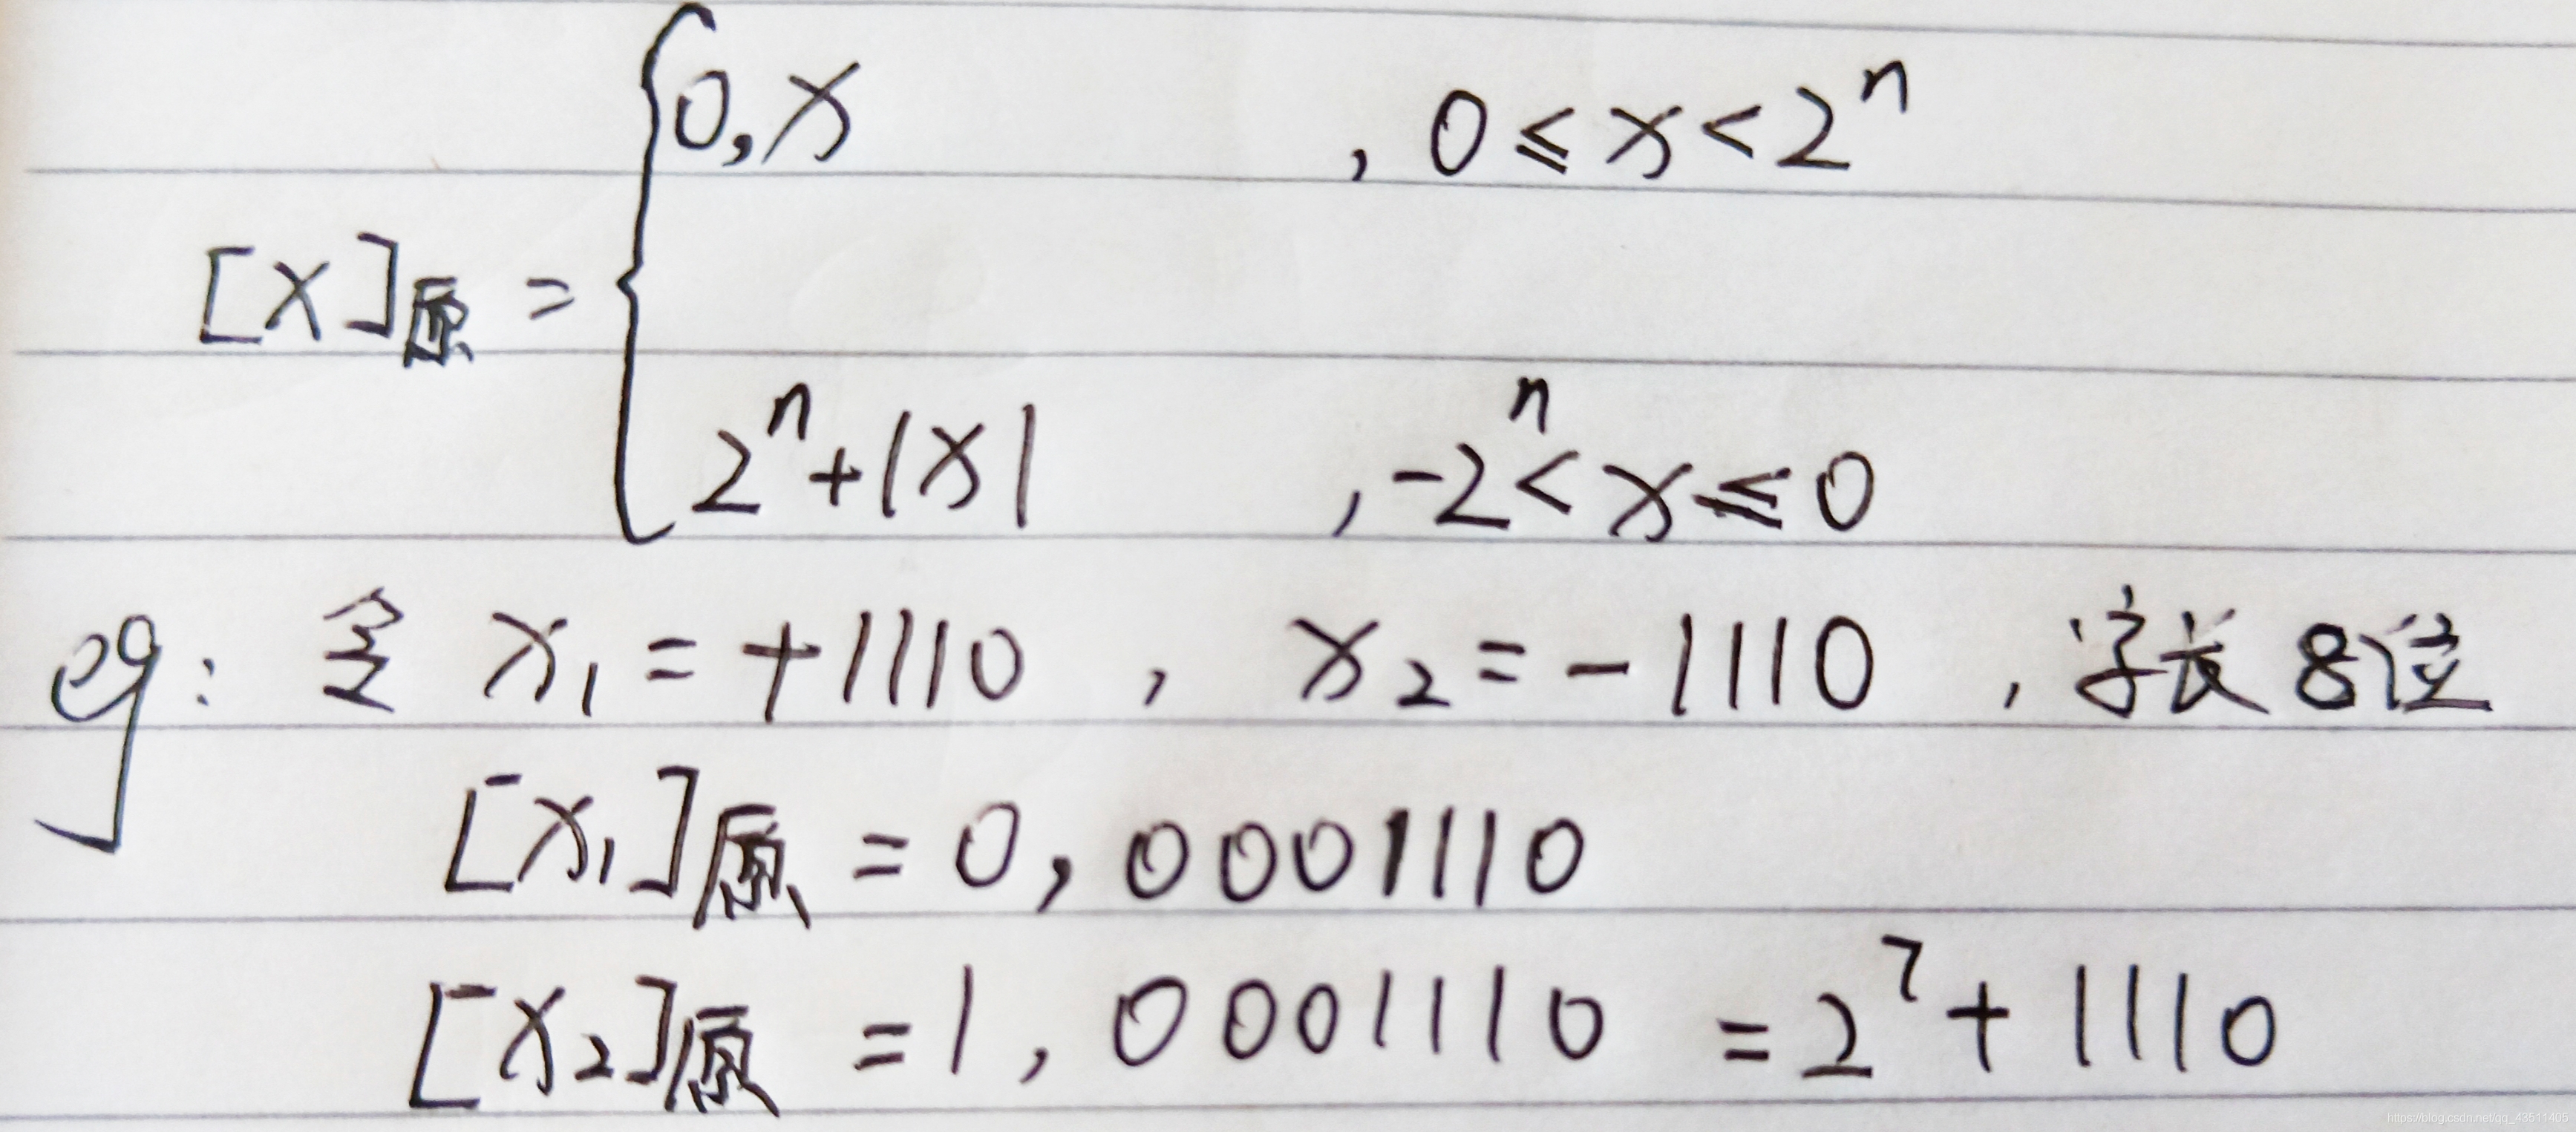 0,x , 0≤x<2ⁿ
[x]原 = {
2ⁿ+|x| , -2ⁿ<x≤0
eg: 令 x₁=+1110 , x₂=-1110 , 字长8位
[x₁]原 =0,0001110
[x₂]原 =1,0001110 =2⁷+1110
https://blog.csdn.net/qq_43511405